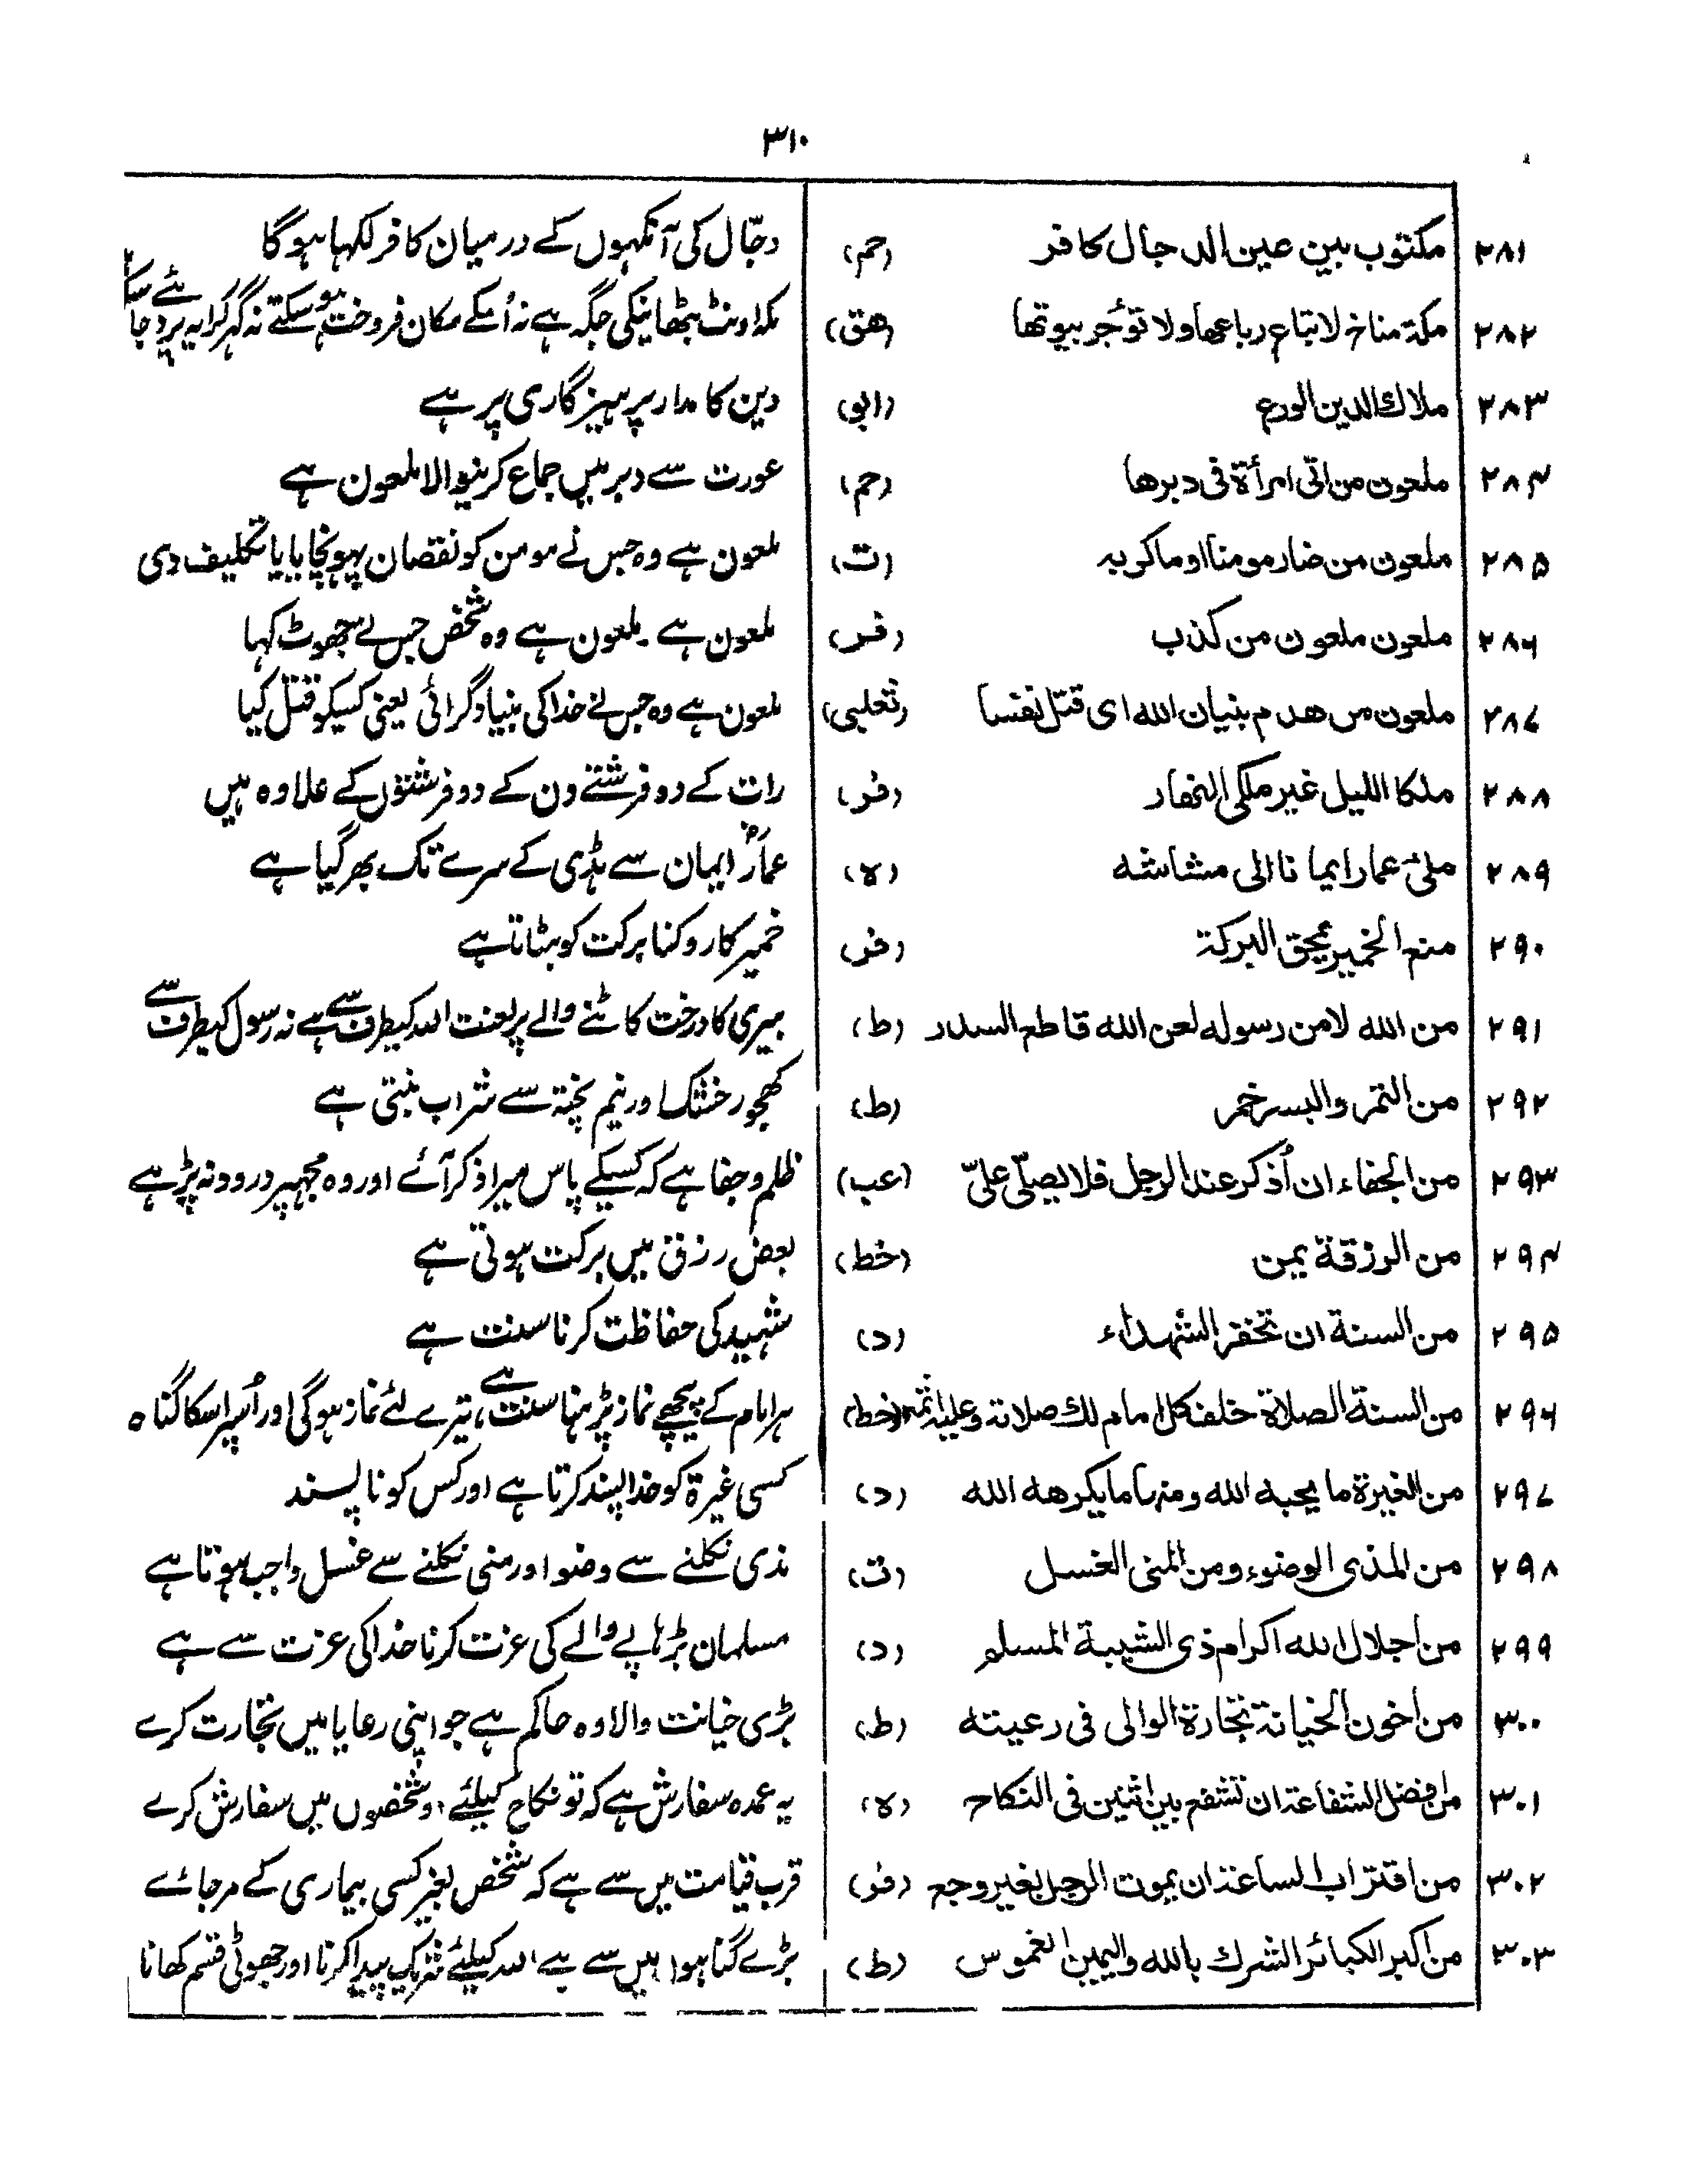 ۳۱۰
۲۸۱ مکتوب بین عین الدجال کافر (حم) دجّال کی آنکہوں کے درمیان کافر لکہا ہوگا
۲۸۲ مکة مناخ لا تباع رباعها ولا تؤجر بیوتها (هق) مکہ اونٹ بٹھانیکی جگہ ہے نہ اُسکے مکان فروخت ہو سکتے نہ گہر کرایہ پر دئے جا سکتے
۲۸۳ ملاك الدین الورع (ابو) دین کا مدار پرہیزگاری پر ہے
۲۸۴ ملعون من اتی امرأة فی دبرها (حم) عورت سے دبر میں جماع کرنیوالا ملعون ہے
۲۸۵ ملعون من ضار مومنا او ماکر به (ت) ملعون ہے وہ جس نے مومن کو نقصان پہونچایا یا تکلیف دی
۲۸۶ ملعون ملعون من کذب (فر) ملعون ہے ۔ ملعون ہے وہ شخص جس نے جھوٹ کہا
۲۸۷ ملعون من هدم بنیان الله ای قتل نفسا (ثعلبی) ملعون ہے وہ جس نے خدا کی بنیاد گرائی یعنی کسیکو قتل کیا
۲۸۸ ملکا اللیل غیر ملکی النهار (فر) رات کے دو فرشتے دن کے دو فرشتوں کے علاوہ ہیں
۲۸۹ ملئ عمار ایمانا الی مشاشه (ه) عمارؓ ایمان سے ہڈی کے سرے تک بھر گیا ہے
۲۹۰ منع الخمیر یمحق البرکة (فر) خمیر کا روکنا برکت کو ہٹاتا ہے
۲۹۱ من الله لا من رسوله لعن الله قاطع السدر (ط) بیری کا درخت کاٹنے والے پر لعنت اللہ کیطرف سے ہے نہ رسول کیطرف سے
۲۹۲ من التمر والبسر خمر (ط) کھجور خشک اور نیم پختہ سے شراب بنتی ہے
۲۹۳ من الجفاء ان اُذکر عند الرجل فلا یصلّی علیّ (عب) ظلم و جفا ہے کہ کسیکے پاس میرا ذکر آئے اور وہ مجہپر درود نہ پڑہے
۲۹۴ من الرزقة یمن (خط) بعض رزق میں برکت ہوتی ہے
۲۹۵ من السنة ان تخفر الشهداء (د) شہید کی حفاظت کرنا سنت ہے
۲۹۶ من السنة الصلاة خلف کل امام لك صلاتة وعلیه اثمه (خط) ہر امام کے پیچھے نماز پڑہنا سنت ہے، تیرے لئے نماز ہوگی اور اُسپر اسکا گناہ
۲۹۷ من الغیرة ما یحبه الله ومنها ما یکرهه الله (د) کسی غیرۃ کو خدا پسند کرتا ہے اور کس کو ناپسند
۲۹۸ من المذی الوضوء ومن المنی الغسل (ت) مذی نکلنے سے وضو اور منی نکلنے سے غسل واجب ہوتا ہے
۲۹۹ من اجلال الله اکرام ذی الشیبة المسلم (د) مسلمان بڑہاپے والے کی عزت کرنا خدا کی عزت سے ہے
۳۰۰ من اخون الخیانة تجارة الوالی فی رعیته (ط) بڑی خیانت والا وہ حاکم ہے جو اپنی رعایا میں تجارت کرے
۳۰۱ من افضل الشفاعة ان تشفع بین اثنین فی النکاح (ه) یہ عمدہ سفارش ہے کہ تو نکاح کیلئے دو شخصوں میں سفارش کرے
۳۰۲ من اقتراب الساعة ان یموت الرجل بغیر وجع (فر) قرب قیامت میں سے ہے کہ شخص بغیر کسی بیماری کے مرجائے
۳۰۳ من اکبر الکبائر الشرك بالله والیمین الغموس (ط) بڑے گناہوں میں سے ہے اللہ کیلئے شریک پیدا کرنا اور جھوٹی قسم کھانا